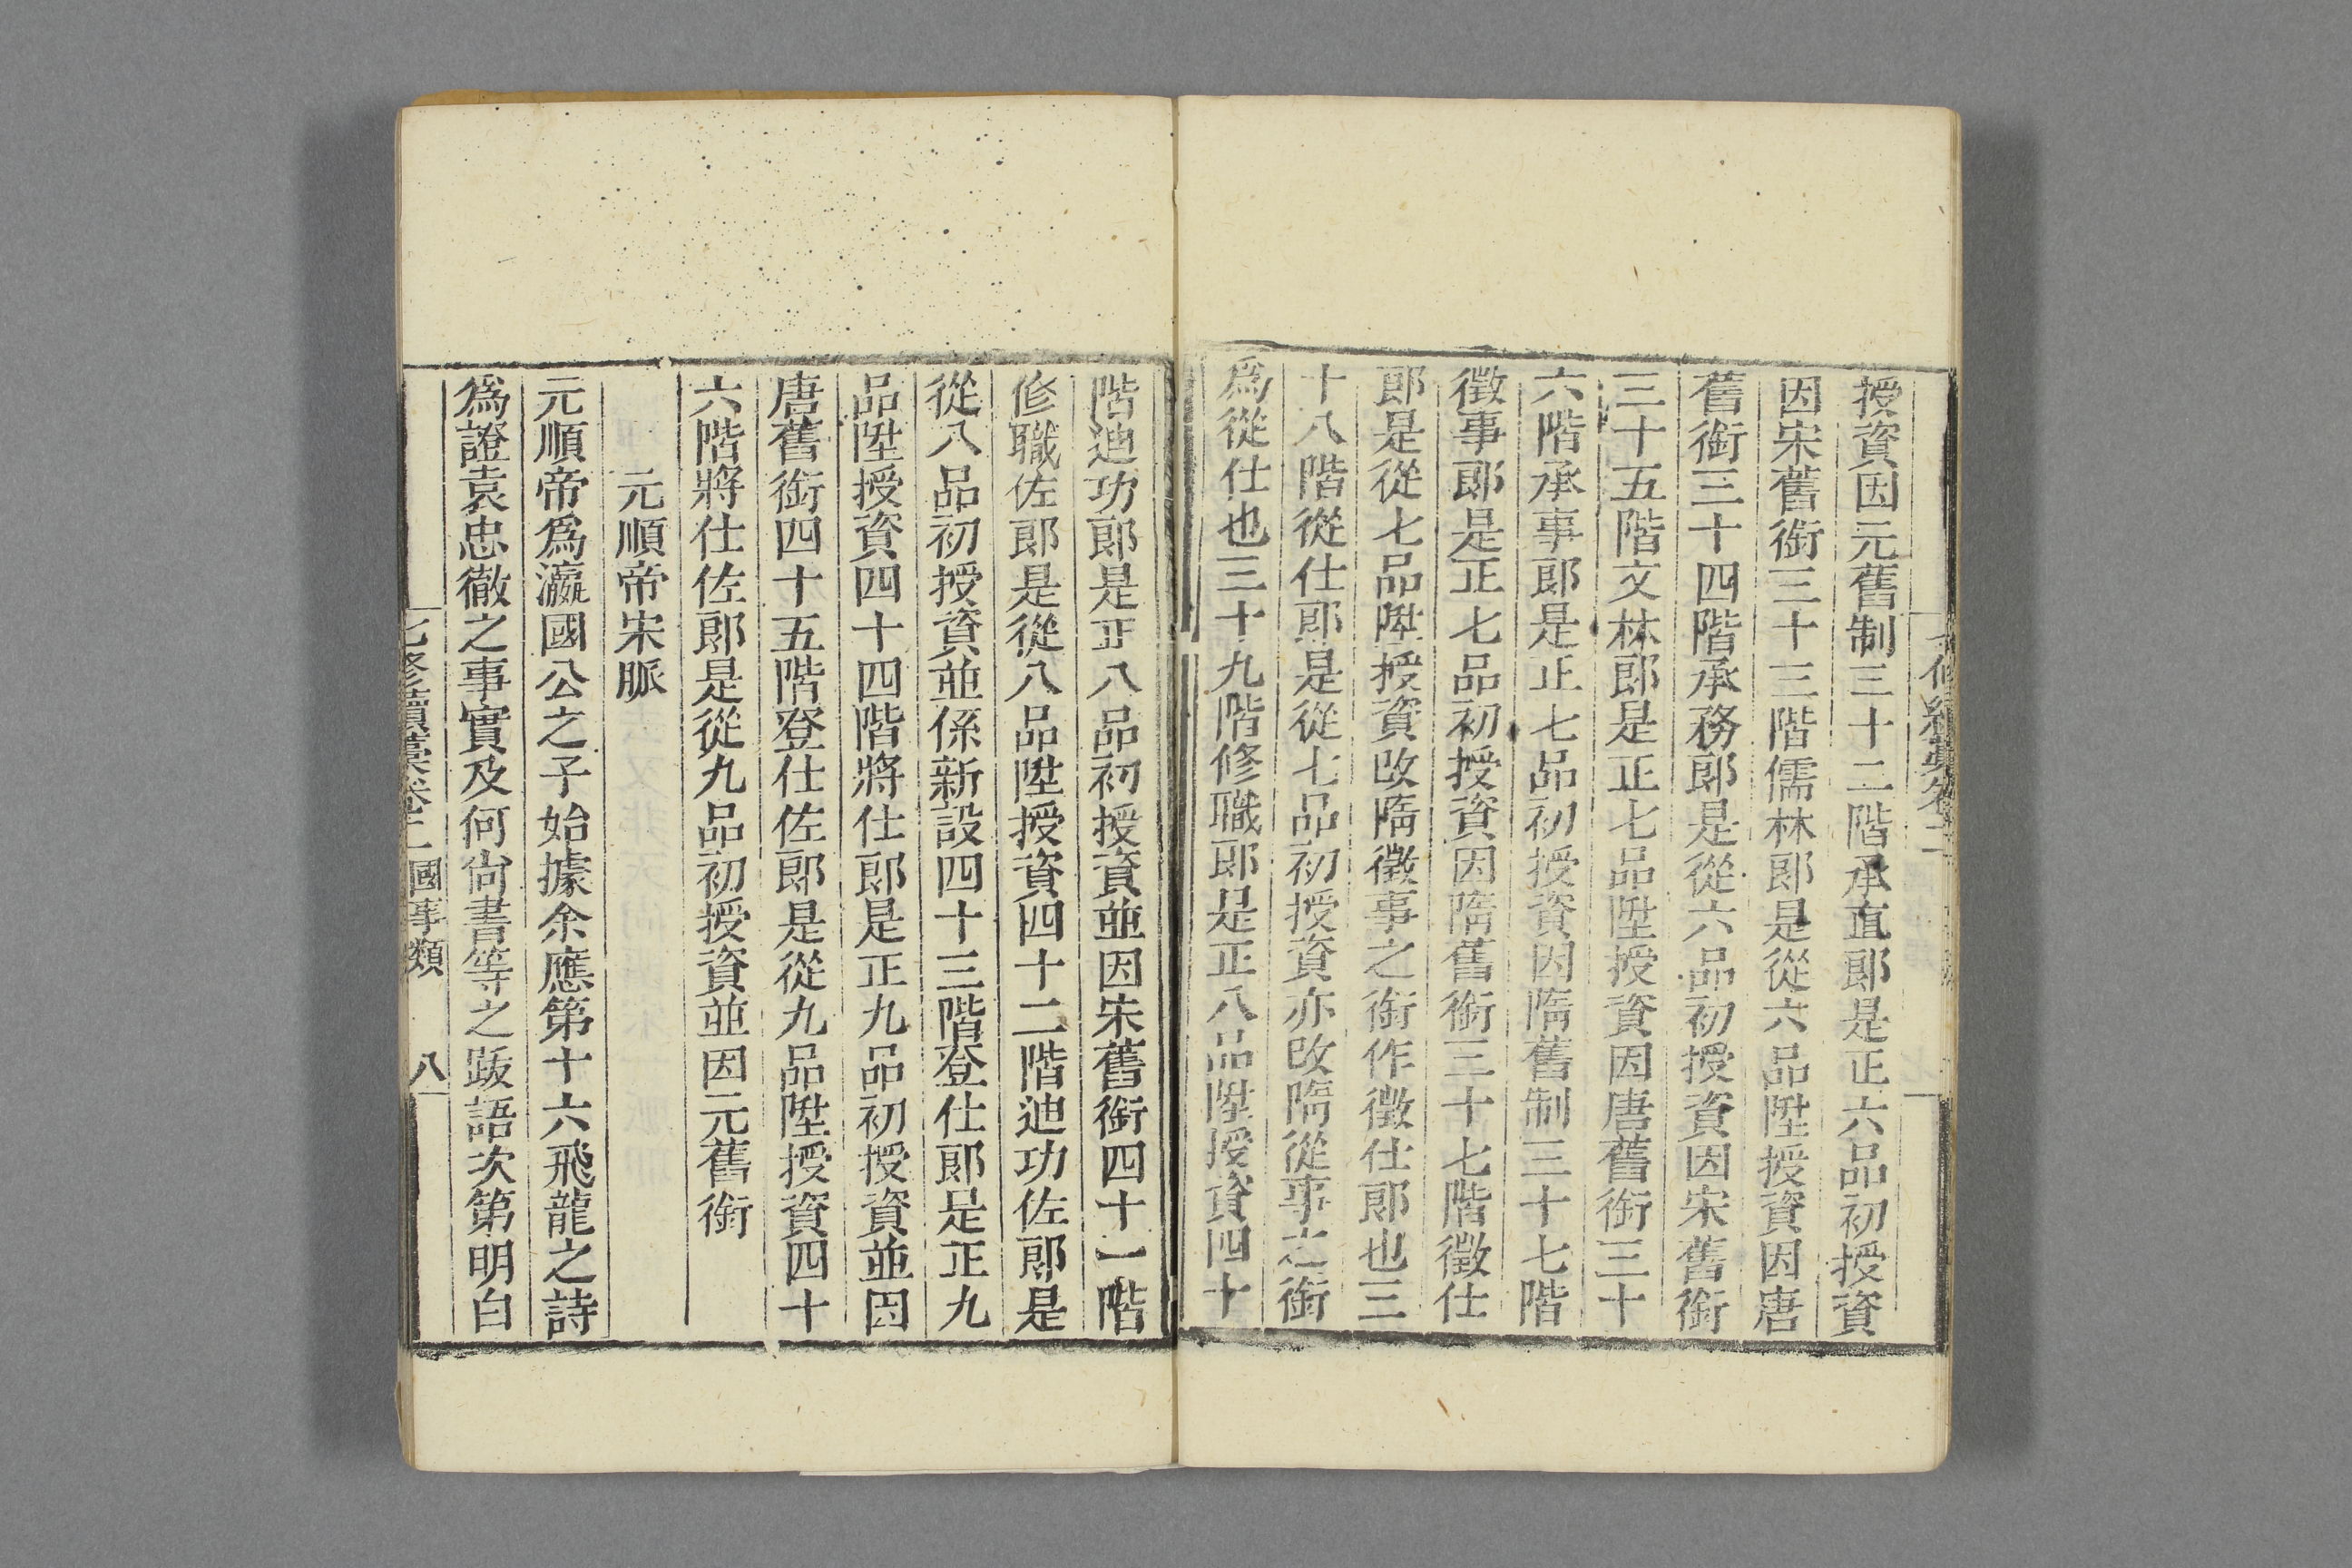 授資因元舊制三十二階承直郎是正六品初授資
因宋舊銜三十三階儒林郎是從六品陞授資因唐
舊銜三十四階承務郎是從六品初授資因宋舊銜
三十五階文林郎是正七品陞授資因唐舊銜三十
六階承事郎是正七品初授資因隋舊制三十七階
徵事郎是正七品初授資因隋舊銜三十七階徵仕
郎是從七品陞授資改隋徵事之銜作徵仕郎也三
十八階從仕郎是從七品初授資亦改隋從事之銜
為從仕也三十九階修職郎是正八品陞授資四十
階迪功郎是正八品初授資並因宋舊銜四十一階
修職佐郎是從八品陞授資四十二階迪功佐郎是
從八品初授資並係新設四十三階登仕郎是正九
品陞授資四十四階將仕郎是正九品初授資並因
唐舊銜四十五階登仕佐郎是從九品陞授資四十
六階將仕佐郎是從九品初授資並因元舊銜
元順帝宋脈
元順帝為瀛國公之子始據余應第十六飛龍之詩
為證袁忠徹之事實及何尙書等之跋語次第明白
七修續藁卷二 國事類 八